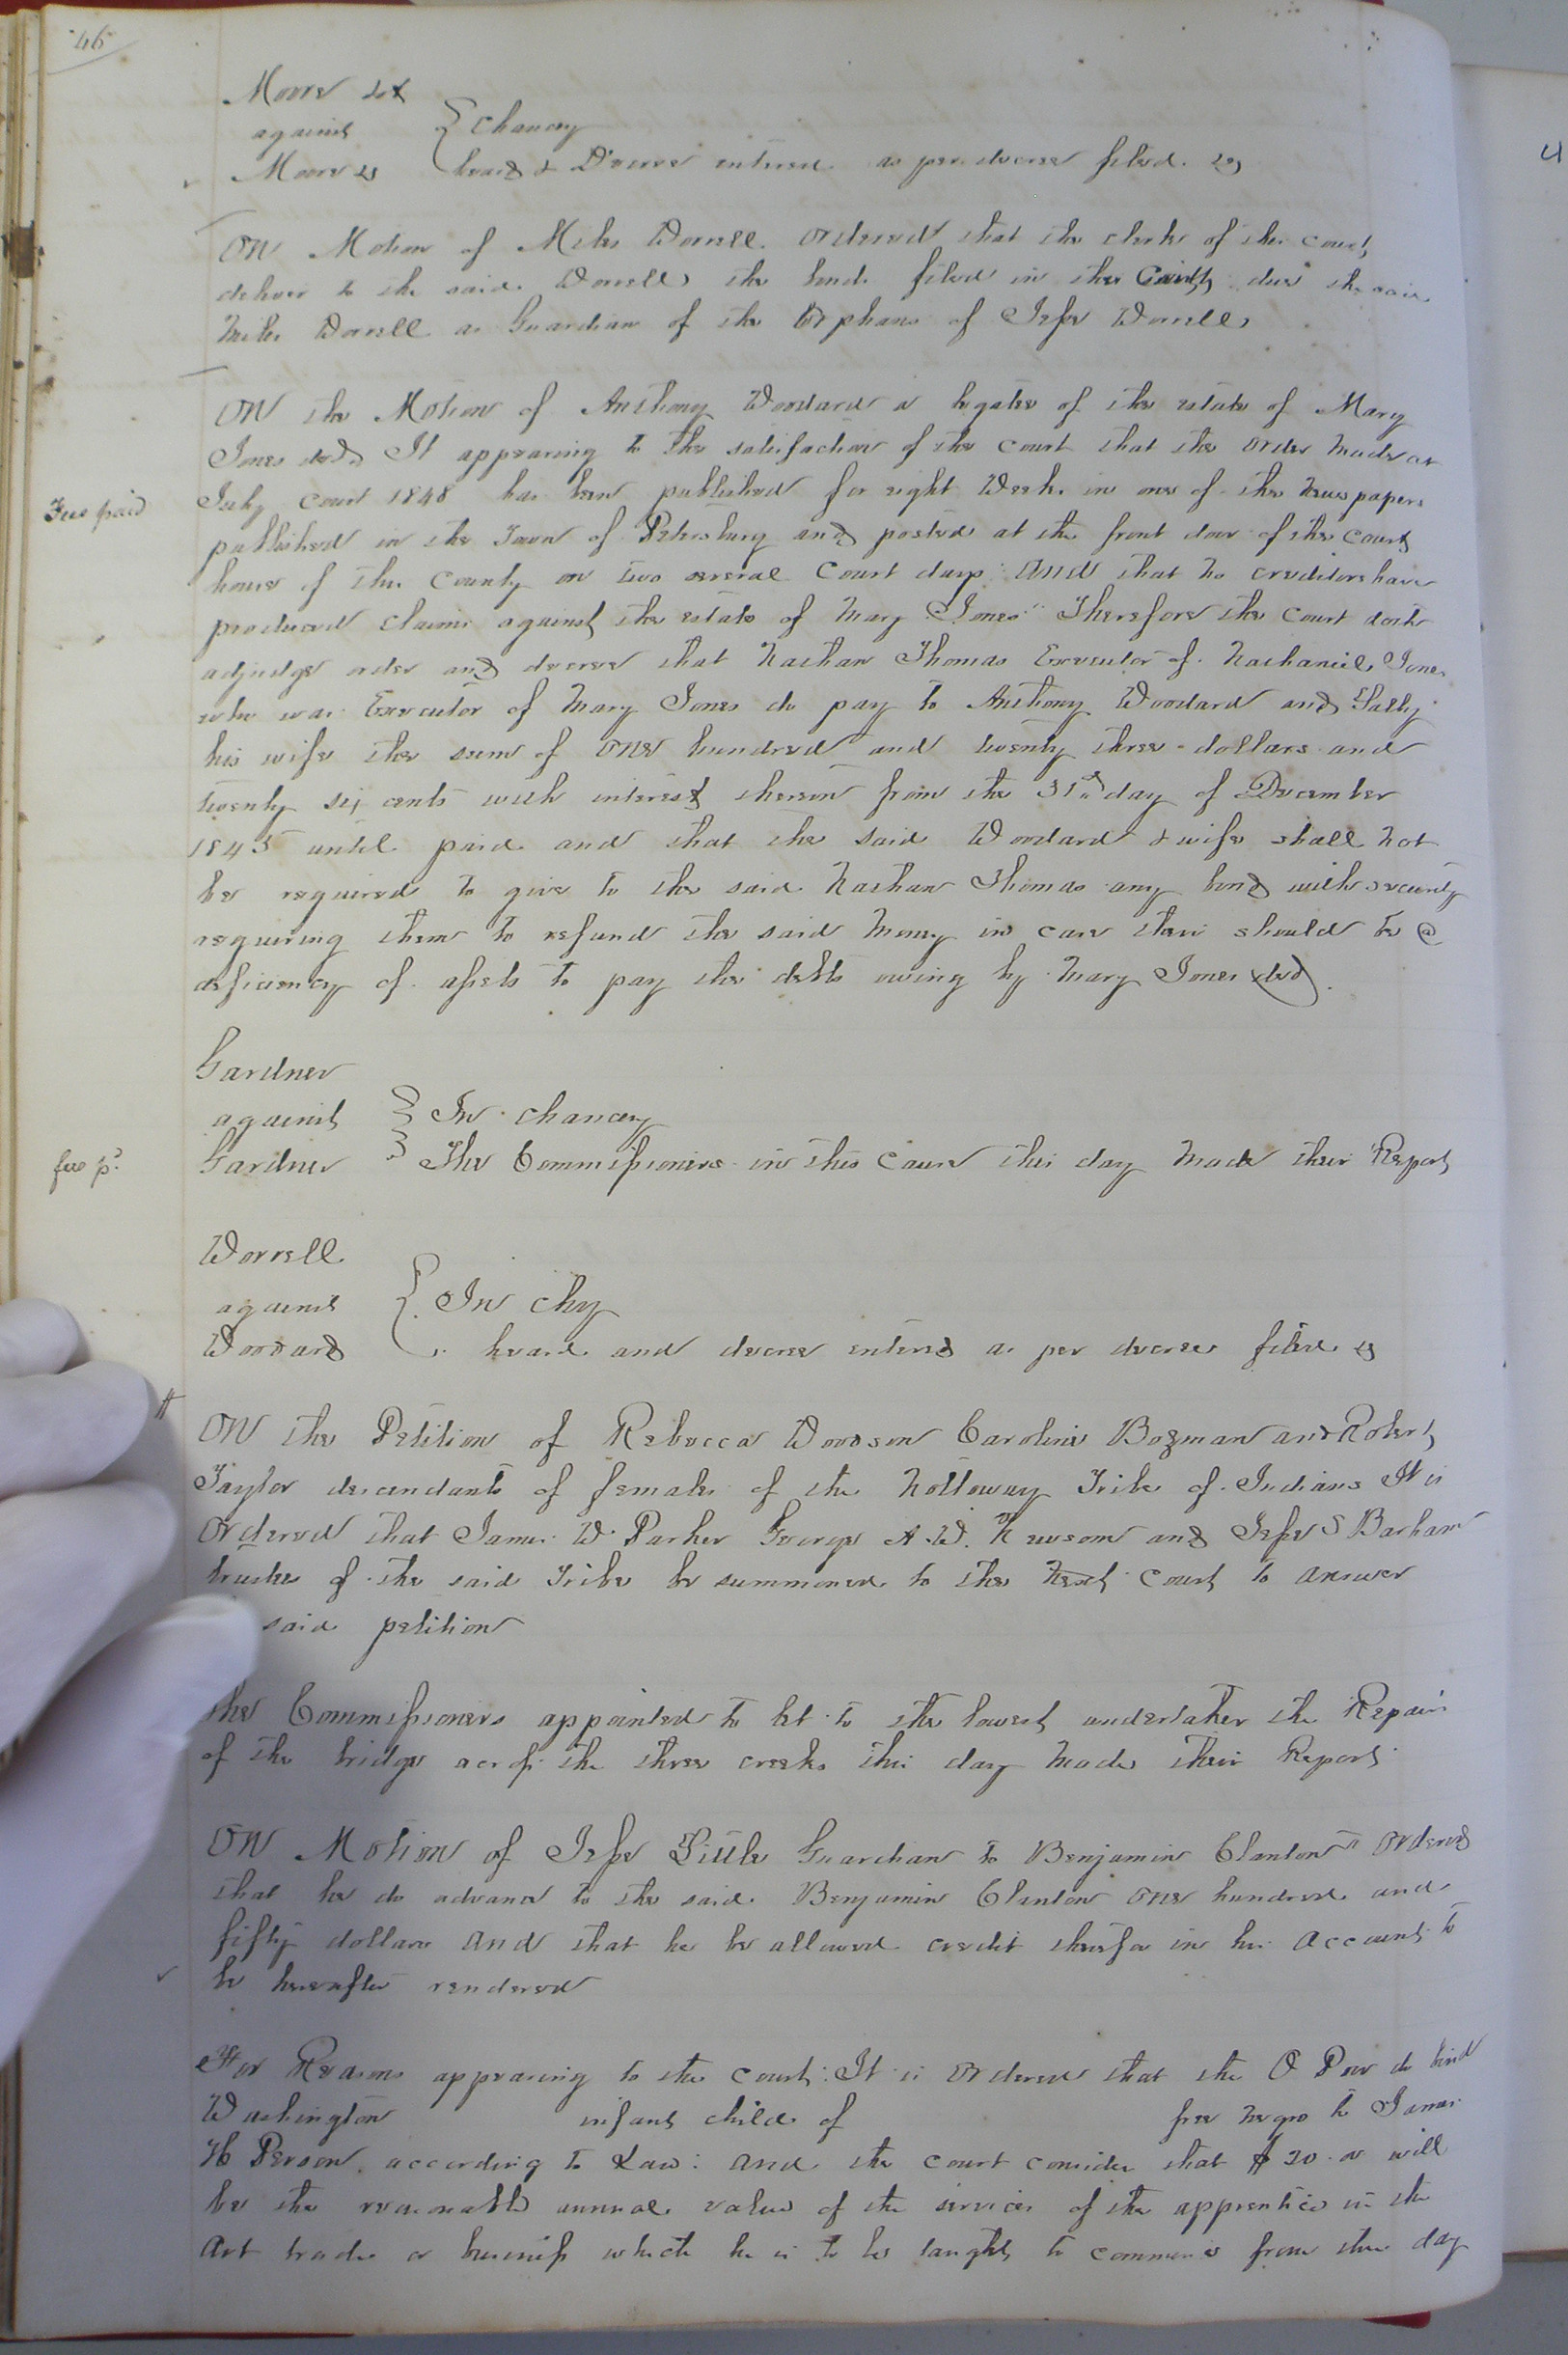 46
Moore &x
against } Chancey
Moore &c heard & Decree entered as per decree filed &c
ON Motion of Miles Worrell Ordered that the clerk of this court
deliver to the said Worrell the bond filed in this by the said
Miles Worrell as Guardian of the Orphans of Jesse Worrell
ON the Motion of Anthony Woodard a legatee of the estate of Mary
Jones decd It appearing to the satisfaction of the court that the order made at
Fee paid
July court 1848 has been published for eight Weeks in one of the Newspapers
published in the Town of Petersburg and posted at the front door of the court
house of this County on two several Court days And that no creditors have
produced claims against the estate of Mary Jones Therefore the court doth
adjudge order and decree that Nathan Thomas Executor of Nathaniel Jones
who was Executor of Mary Jones do pay to Anthony Woodard and Sally
his wife the sum of one hundred and twenty three dollars and
twenty six cents with interest thereon from the 31st day of December
1845 until paid and that the said Woodard & wife shall not
be required to give to the said Nathan Thomas any bond with security
requiring them to refund the said money in case their should be a
deficiency of assets to pay the debts owing by Mary Jones decd
Gardner
against } In chancey
fee pd.
Gardner The Commissioners in this cause this day made their Report
Worrell
against } In chy
Woodard heard and decree entered as per decree filed &c
ON the Petition of Rebecca Woodson Caroline Bozman and Robert
Taylor descendants of females of the Nottoway Tribe of Indians It is
Ordered that James W Parker George A. W. Newsom and Jesse S Barham
trustees of the said Tribe be summoned to the next court to answer
said petition
the Commissioners appointed to let to the lowest undertaker the Repairs
of the bridge across the three creeks this day made their Report
ON Motion of Jesse Little Guardian to Benjamin Clanton Ordered
that he do advance to the said Benjamin Clanton one hundred and
fifty dollars and that he be allowed credit therefor in his account to
be hereafter rendered
For Reasons appearing to the court It is Ordered that the O Poor do bind
Washington infant child of free negro to James
H Person according to Law: and the court consider that $20. will
be the reasonable annual value of the services of the apprentice in the
art trade or business which he is to be taught to commence from this day